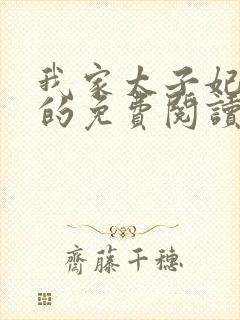 我家太子妃
的免費閱讀
齋藤千穗